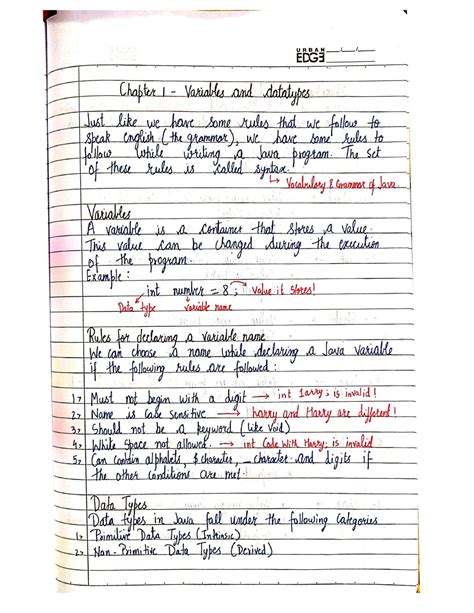 URBAN
EDGE
Chapter 1 - Variables and datatypes
Just like we have some rules that we follow to
speak english (the grammar), we have some rules to
follow while writing a Java program. The set
of these rules is called syntax.
↳ Vocabulary & Grammar of Java.
Variables
A variable is a container that stores a value.
This value can be changed during the execution
of the program.
Example:
int number = 8; → value it stores!
Data type variable name
Rules for declaring a variable name
We can choose a name while declaring a Java variable
if the following rules are followed:
1> Must not begin with a digit → int 1arry; is invalid!
2> Name is Case Sensitive → harry and Harry are different!
3> Should not be a keyword (like Void)
4> White Space not allowed. → int Code With Harry; is invalid
5> Can contain alphabets, $ character, _ character and digits if
the other conditions are met.
Data Types
Data types in Java fall under the following categories
1> Primitive Data Types (Intrinsic)
2> Non-Primitive Data Types (Derived)